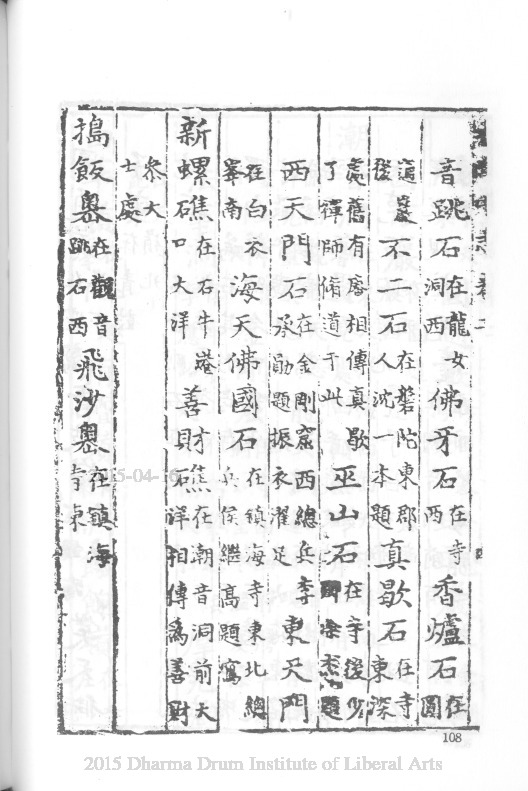 音跳石在龍女洞西佛牙石在寺西香爐石在圓
通巖後不二石在磐陀東郡人沈一本題真歇石在寺東深
處舊有庵相傳真歇了禪師脩道于此巫山石在寺後少
西天門石在金剛窟西總兵李承勛題振衣濯足東天門
在白衣峯南海天佛國石在鎮海寺東北總兵侯繼高題寫
新螺礁在石牛港口大洋善財礁在潮音洞前大洋相傳為善財
叅大士處
搗飯嶴在觀音跳石西飛沙嶴在鎮海寺東
108
2015-04-16
2015 Dharma Drum Institute of Liberal Arts